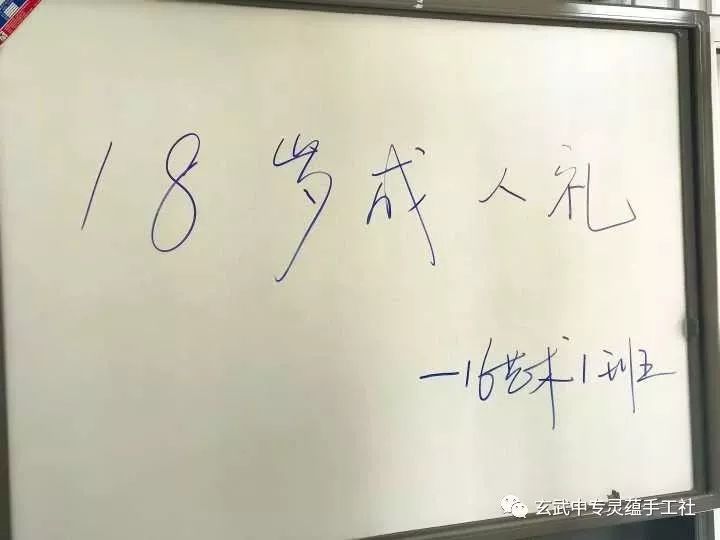 18岁成人礼
—16艺术1班
玄武中专灵蕴手工社